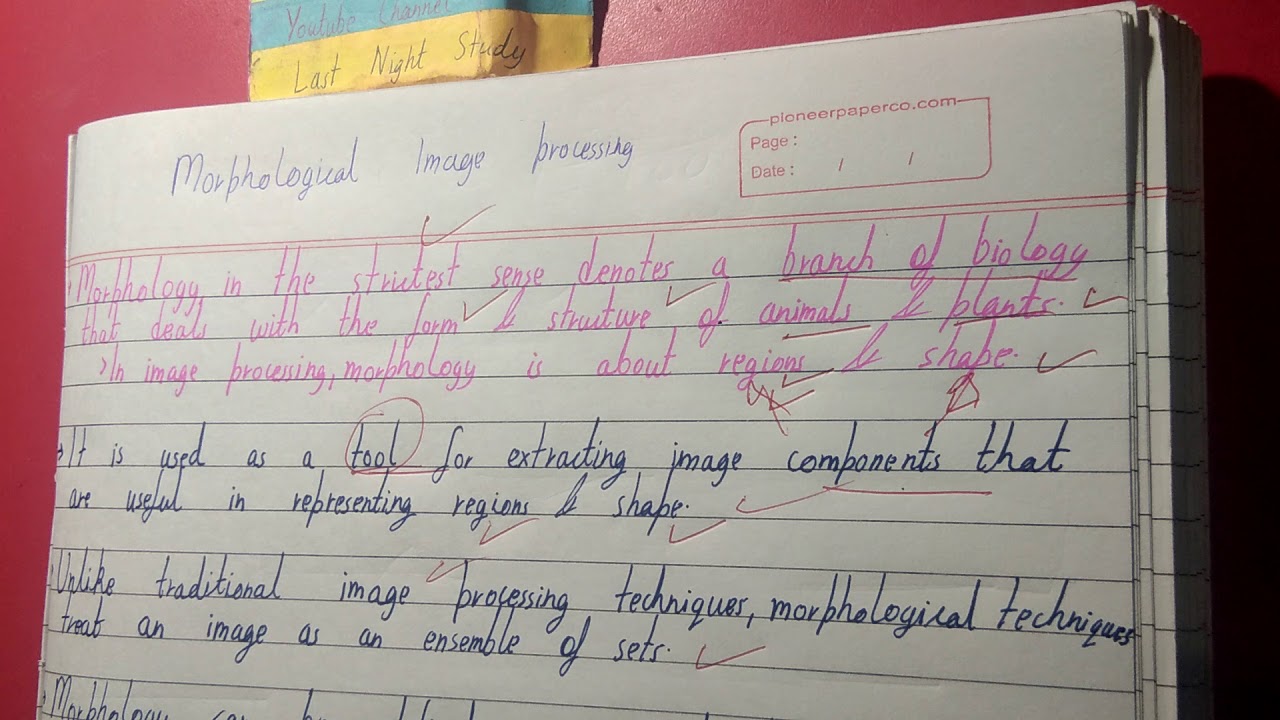 Youtube Channel
Last Night Study
pioneerpaperco.com
Page :
Date : / /
Morphological Image processing
Morphology in the strictest sense denotes a branch of biology
that deals with the form & structure of animals & plants.
In image processing, morphology is about regions & shape.
It is used as a tool for extracting image components that
are useful in representing regions & shape.
Unlike traditional image processing techniques, morphological techniques
treat an image as an ensemble of sets.
Morphology can